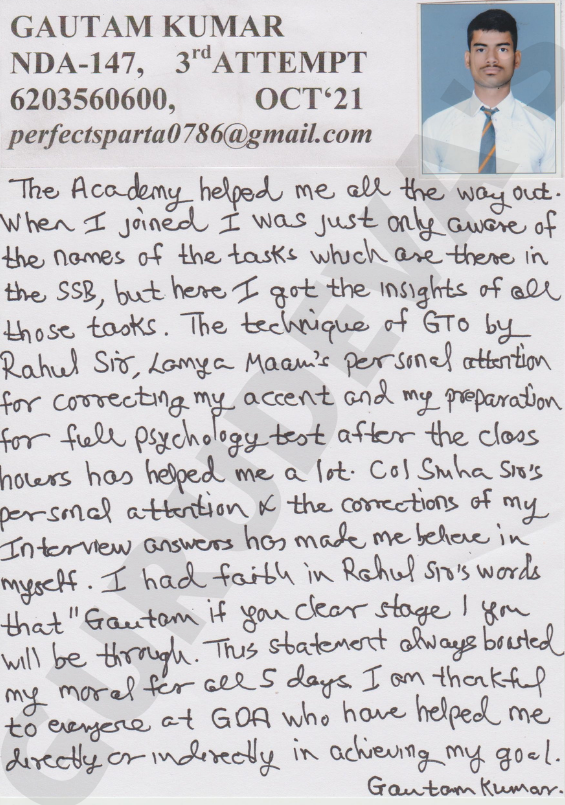 GAUTAM KUMAR
NDA-147, 3rd ATTEMPT
6203560600, OCT‘21
perfectsparta0786@gmail.com
The Academy helped me all the way out.
When I joined I was just only aware of
the names of the tasks which are there in
the SSB, but here I got the insights of all
those tasks. The technique of GTO by
Rahul Sir, Lamya Maam's personal attention
for correcting my accent and my preparation
for full psychology test after the class
hours has helped me a lot. Col Sinha Sir's
personal attention & the corrections of my
Interview answers has made me believe in
myself. I had faith in Rahul Sir's words
that "Gautam if you clear stage 1 you
will be through. This statement always boosted
my moral for all 5 days. I am thankful
to everyone at GDA who have helped me
directly or indirectly in achieving my goal.
Gautam Kumar.
GURUDEVAS